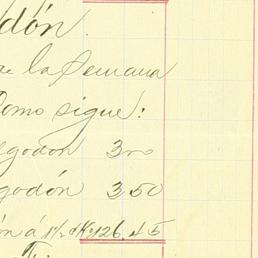 dón.
de la Semana
Como sigue:
lgodon 300
godón 3,50
ón á 26,45